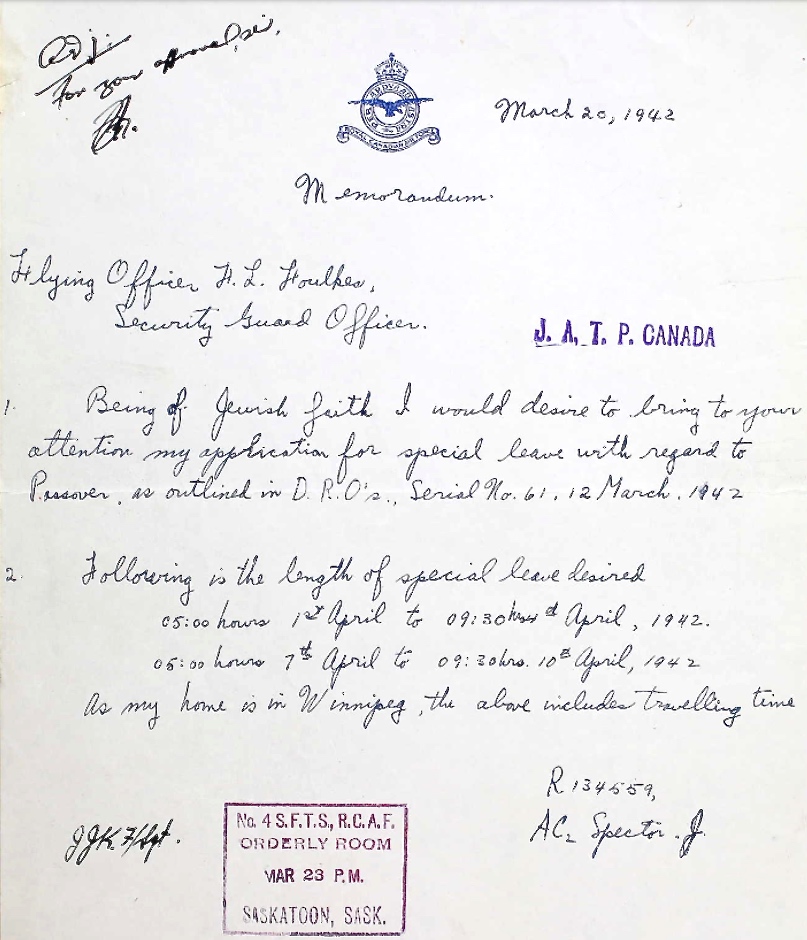 Adj.
For your approval, sir,
March 20, 1942
PER ARDUA AD ASTRA
ROYAL CANADIAN AIR FORCE
Memorandum.
Flying Officer F. L. Foulkes,
Security Guard Officer.
J. A. T. P. CANADA
1. Being of Jewish faith I would desire to bring to your
attention my application for special leave with regard to
Passover, as outlined in D.R.O's., Serial No. 61, 12 March, 1942
2. Following is the length of special leave desired
05:00 hours 1st April to 09:30 hrs 4th April, 1942.
05:00 hours 7th April to 09:30 hrs. 10th April, 1942
As my home is in Winnipeg, the above includes travelling time
R 134559,
AC2 Spector. J.
JJK F/Sgt.
No. 4 S.F.T.S., R.C.A.F.
ORDERLY ROOM
MAR 23 P.M.
SASKATOON, SASK.